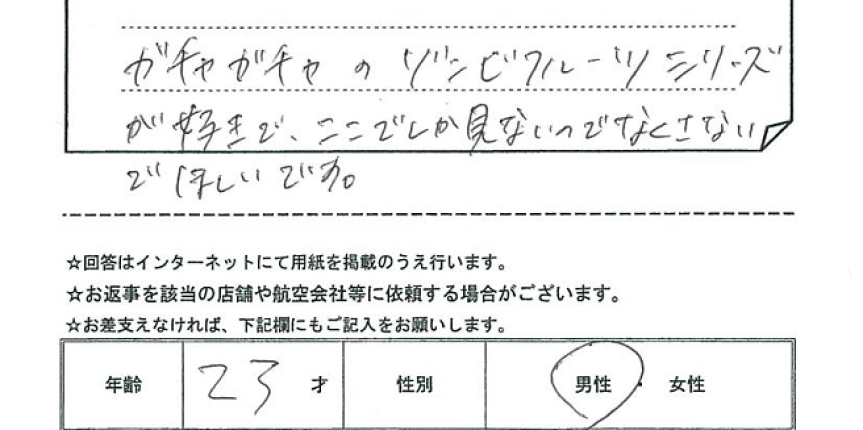 ガチャガチャのゾンビフルーツシリーズ
が好きで、ここでしか見ないのでなくさない
でほしいです。
☆回答はインターネットにて用紙を掲載のうえ行います。
☆お返事を該当の店舗や航空会社等に依頼する場合がございます。
☆お差支えなければ、下記欄にもご記入をお願いします。
年齢 23 才 性別 男性・女性